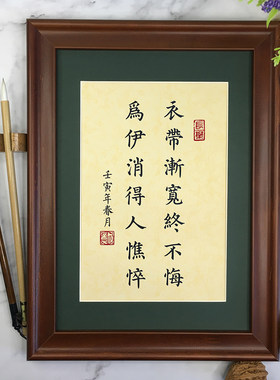 衣帶漸寬終不悔
爲伊消得人憔悴
壬寅年春月